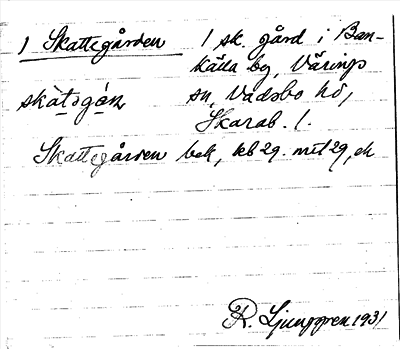 1 Skattegården 1 sk. gård i Ban-
källa by, Värings
skàtəgán sn, Vadsbo hd,
Skarab. l.
Skattegården bek, kb 29. mtl 29, ek
R. Ljunggren 1931